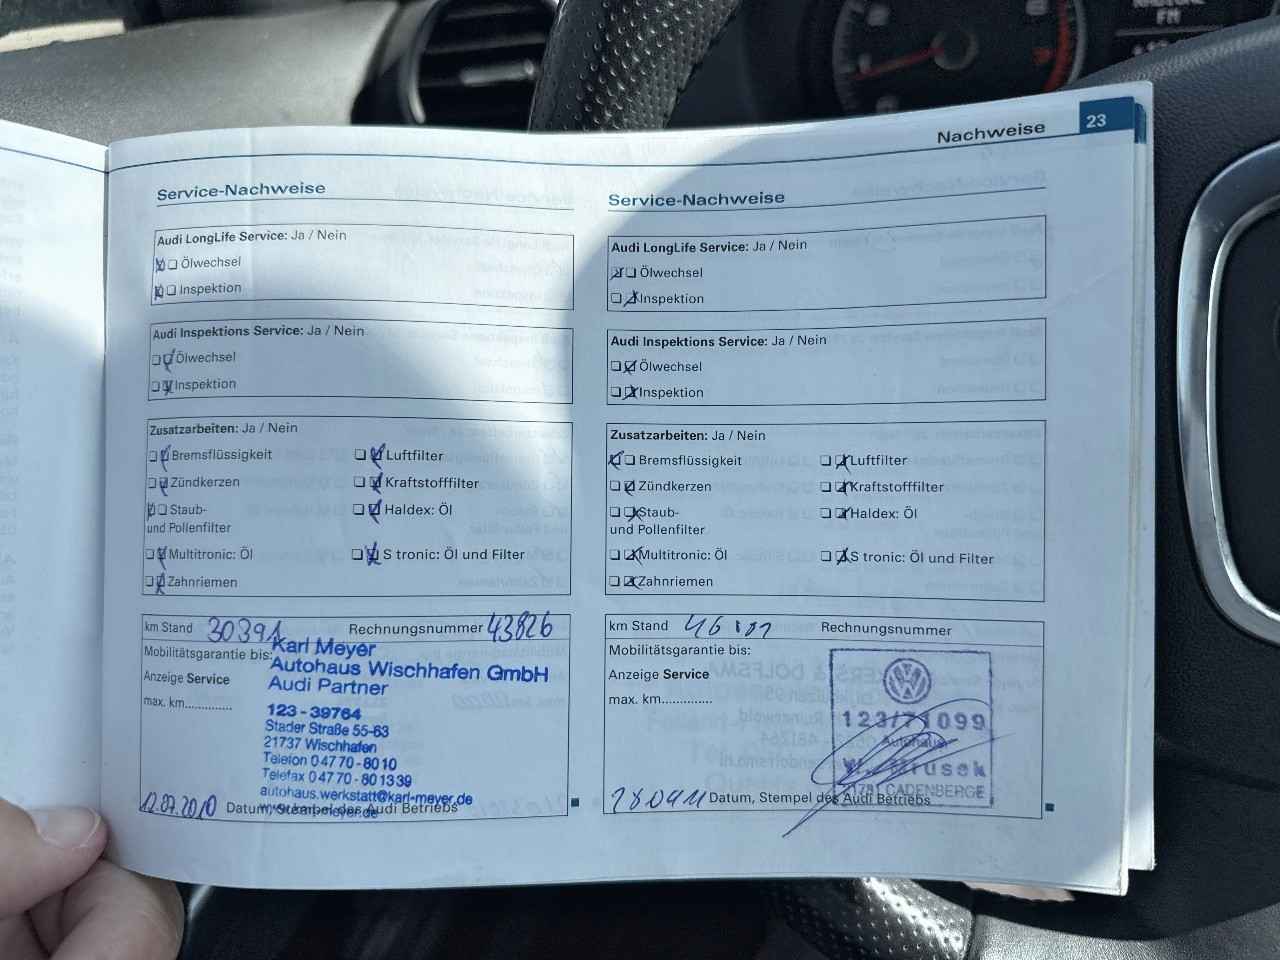 FM
Nachweise 23
Service-Nachweise
Audi LongLife Service: Ja / Nein
Ölwechsel
Inspektion
Audi Inspektions Service: Ja / Nein
Ölwechsel
Inspektion
Zusatzarbeiten: Ja / Nein
Bremsflüssigkeit Luftfilter
Zündkerzen Kraftstofffilter
Staub- Haldex: Öl
und Pollenfilter
Multitronic: Öl S tronic: Öl und Filter
Zahnriemen
km Stand 30391 Rechnungsnummer 43826
Mobilitätsgarantie bis:
Anzeige Service
max. km..............
Karl Meyer
Autohaus Wischhafen GmbH
Audi Partner
123 - 39764
Stader Straße 55-63
21737 Wischhafen
Telefon 04770 - 8010
Telefax 04770 - 801339
autohaus.werkstatt@karl-meyer.de
www.karl-meyer.de
12.07.2010 Datum, Stempel des Audi Betriebs
Service-Nachweise
Audi LongLife Service: Ja / Nein
Ölwechsel
Inspektion
Audi Inspektions Service: Ja / Nein
Ölwechsel
Inspektion
Zusatzarbeiten: Ja / Nein
Bremsflüssigkeit Luftfilter
Zündkerzen Kraftstofffilter
Staub- Haldex: Öl
und Pollenfilter
Multitronic: Öl S tronic: Öl und Filter
Zahnriemen
km Stand Rechnungsnummer
Mobilitätsgarantie bis:
Anzeige Service
max. km..............
123/71099
Autohaus
CADENBERGE
280411 Datum, Stempel des Audi Betriebs